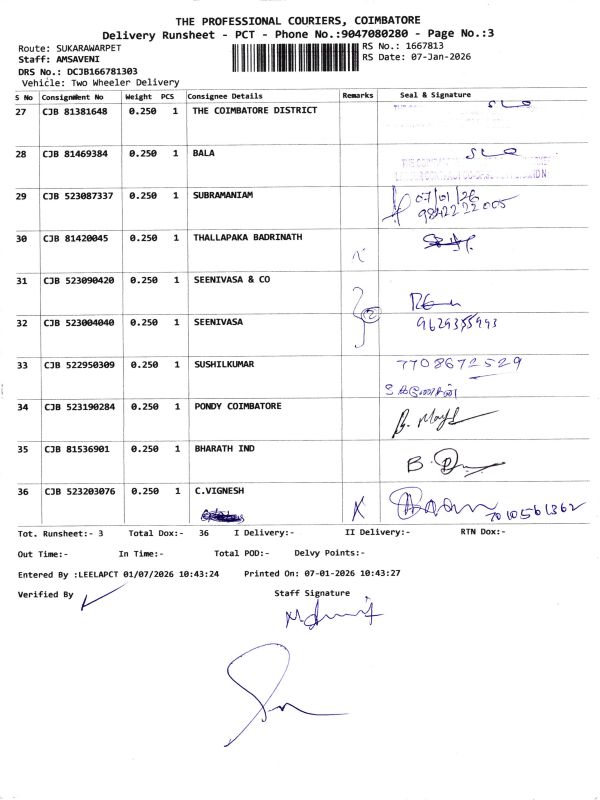 THE PROFESSIONAL COURIERS, COIMBATORE
Delivery Runsheet - PCT - Phone No.:9047080280 - Page No.:3
Route: SUKARAWARPET
RS No.: 1667813
Staff: AMSAVENI
RS Date: 07-Jan-2026
DRS No.: DCJB166781303
Vehicle: Two Wheeler Delivery
S No Consignment No Weight PCS Consignee Details Remarks Seal & Signature
27 CJB 81381648 0.250 1 THE COIMBATORE DISTRICT
28 CJB 81469384 0.250 1 BALA
29 CJB 523087337 0.250 1 SUBRAMANIAM 07/01/26
9842222005
30 CJB 81420045 0.250 1 THALLAPAKA BADRINATH
31 CJB 523090420 0.250 1 SEENIVASA & CO
32 CJB 523004040 0.250 1 SEENIVASA 9629355993
33 CJB 522950309 0.250 1 SUSHILKUMAR 7708672529
34 CJB 523190284 0.250 1 PONDY COIMBATORE
35 CJB 81536901 0.250 1 BHARATH IND
36 CJB 523203076 0.250 1 C.VIGNESH 7010561362
Tot. Runsheet:- 3 Total Dox:- 36 I Delivery:- II Delivery:- RTN Dox:-
Out Time:- In Time:- Total POD:- Delvy Points:-
Entered By :LEELAPCT 01/07/2026 10:43:24 Printed On: 07-01-2026 10:43:27
Verified By Staff Signature